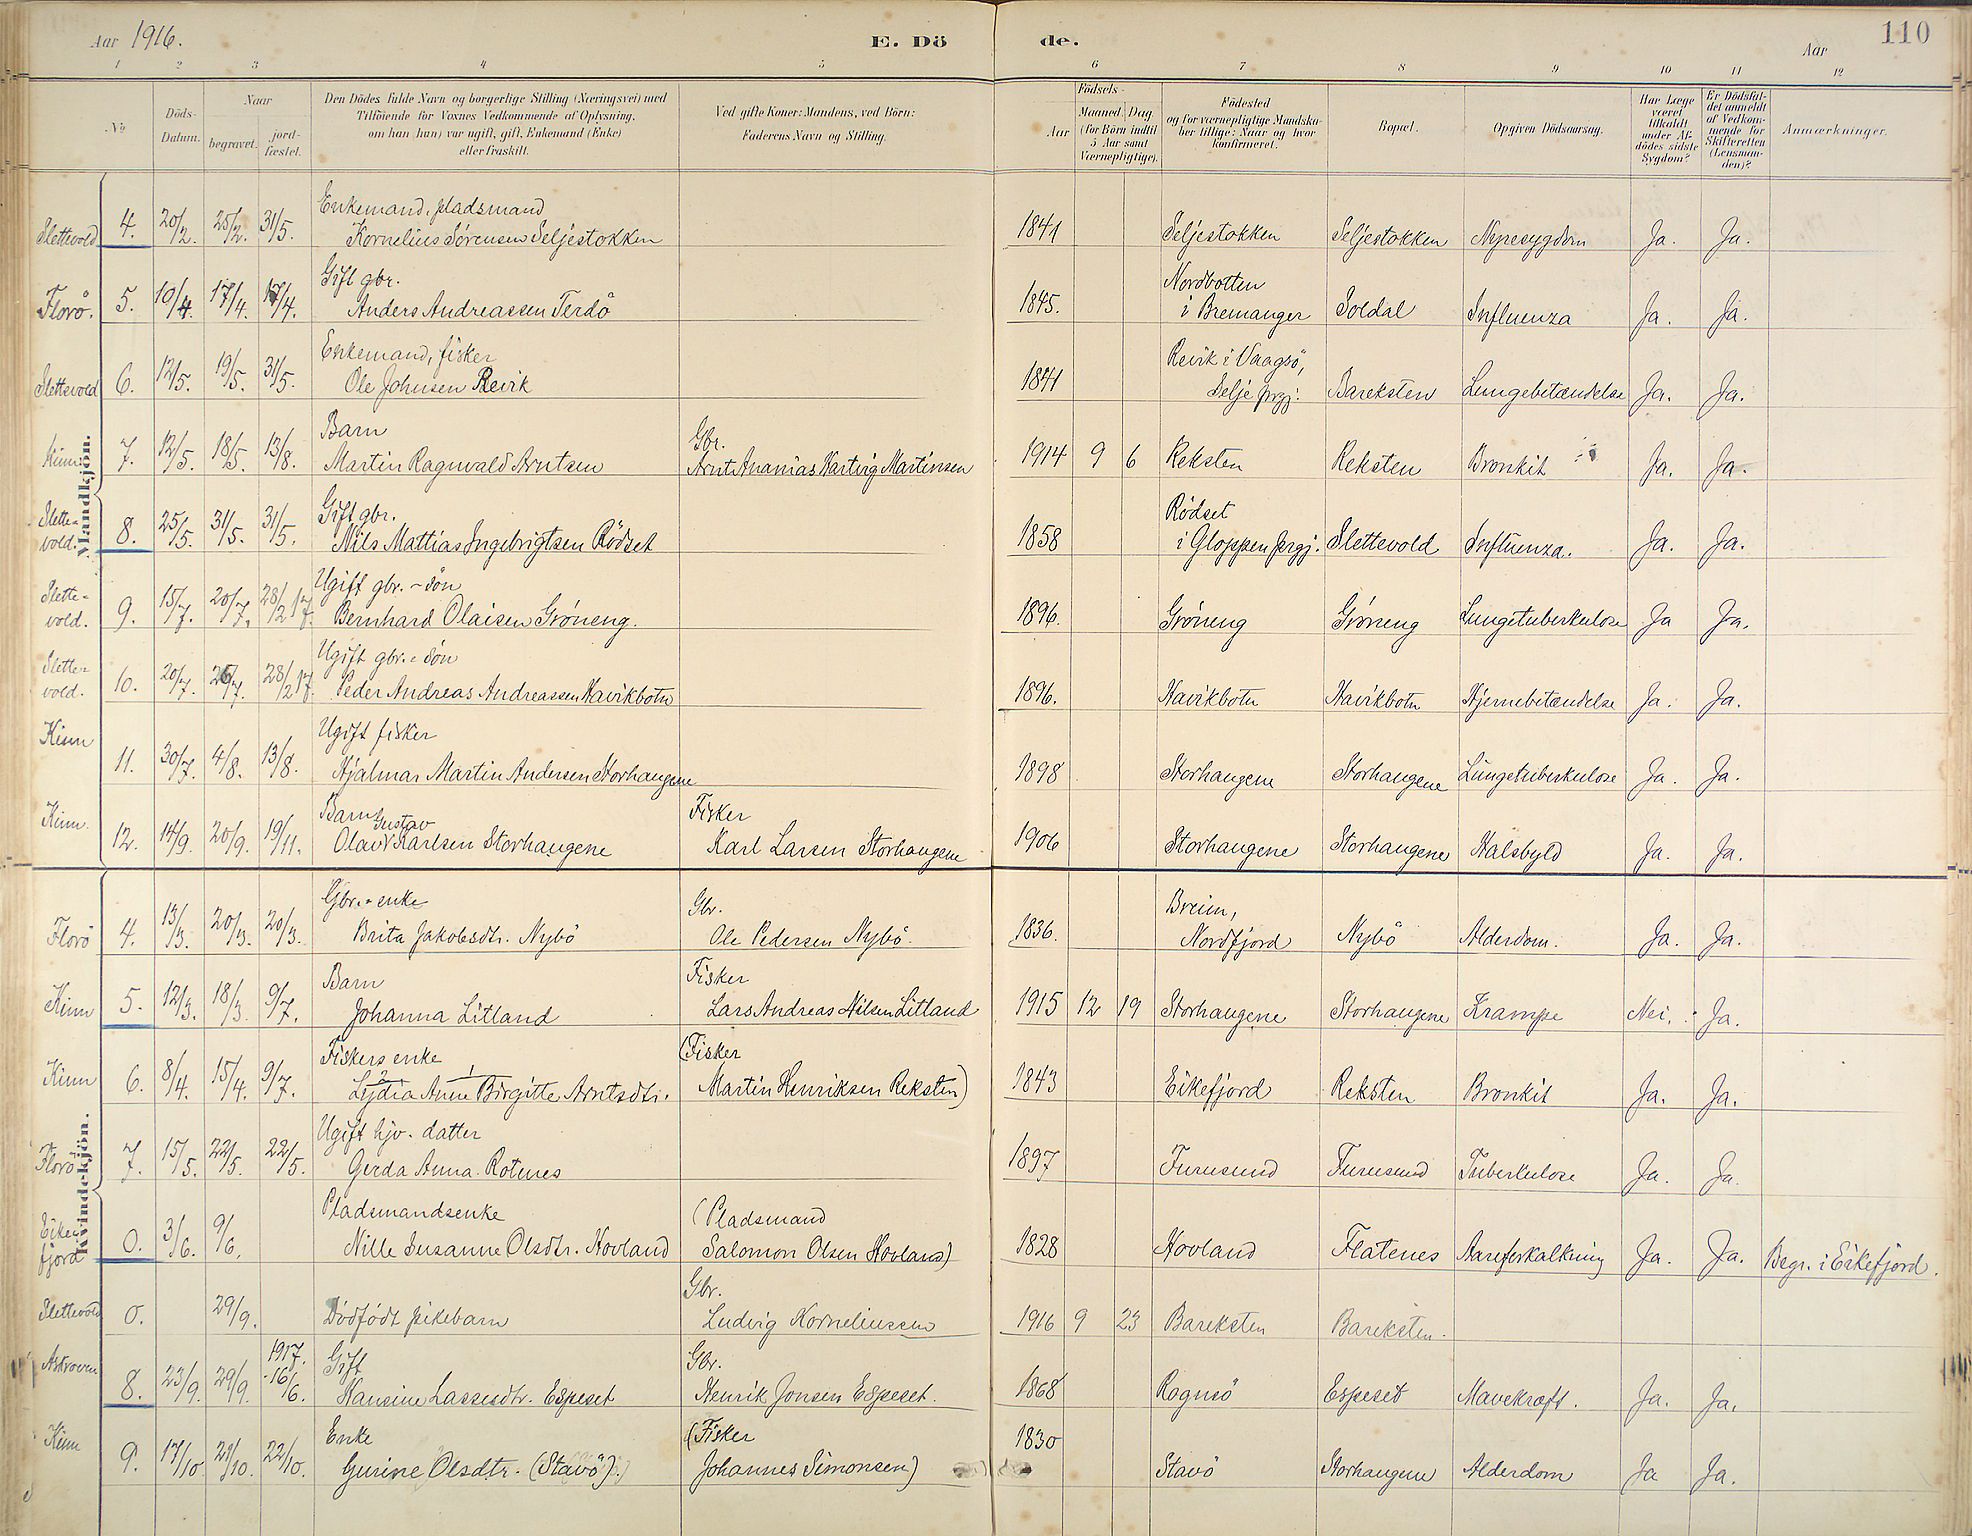 Aar 1916. E. Dö de. Aar 110
1 2 3 4 5 6 7 8 9 10 11 12
No
Döds-Datum.
Naar
begravet.
jord-fæstet.
Den Dödes fulde Navn og borgerlige Stilling (Næringsvei) med
Tilföiende for Voxnes Vedkommende af Oplysning,
om han (hun) var ugift, gift, Enkemand (Enke)
eller fraskilt.
Ved gifte Koner: Mandens, ved Börn:
Faderens Navn og Stilling.
Födsels-
Aar
Maaned. Dag
(for Börn indtil
5 Aar samt
Værnepligtige).
Födested
og for værnepligtige Mandska-
ber tillige: Naar og hvor
konfirmeret.
Bopæl.
Opgiven Dödsaarsag.
Har Læge
været
tilkaldt
under Af-
dödes sidste
Sygdom?
Er Dödsfal-
det anmeldt
af Vedkom-
mende for
Skifteretten
(Lensman-
den)?
Anmærkninger.
Mandkjön.
Enkemand, pladsmand
Slettevold 4. 20/2. 25/2. 31/5. Kornelius Sörensen Seljestokken 1841 Seljestokken Seljestokken Nyresygdom Ja. Ja.
Gift gbr. Nordbotten
Florö. 5. 10/4. 17/4. 17/4. Anders Andreassen Terdö 1845. i Bremanger Soldal Influenza Ja. Ja.
Enkemand, fisker Revik i Vaagsö,
Slettevold 6. 12/5. 19/5. 31/5. Ole Johnsen Revik 1841 Selje prgj. Bareksten Lungebetændelse Ja. Ja.
Barn Gbr.
Kinn 7. 12/5. 18/5. 13/8. Martin Ragnvald Arntsen Arnt Ananias Hartvig Martinsen 1914 9 6 Reksten Reksten Bronkit Ja. Ja.
Gift gbr. Rödset
Slette-vold. 8. 25/5. 31/5. 31/5. Nils Mattias Ingebrigtsen Rödset 1858 i Gloppen prgj. Slettevold Influenza. Ja. Ja.
Ugift gbr.-sön
Slette-vold. 9. 15/7. 20/7. 28/2 17. Bernhard Olaisen Gröneng. 1896. Gröneng Gröneng Lungetuberkulose Ja Ja.
Ugift gbr.-sön
Slette-vold. 10. 20/7. 26/7. 28/2 17. Peder Andreas Andreassen Havikbotn 1896. Havikbotn Havikbotn Hjernebetændelse Ja. Ja.
Ugift fisker
Kinn 11. 30/7. 4/8. 13/8. Hjalmar Martin Andersen Storhaugene 1898 Storhaugene Storhaugene Lungetuberkulose Ja. Ja.
Barn Gustav Fisker
Kinn. 12. 14/9. 20/9. 19/11. Olav Karlsen Storhaugene Karl Larsen Storhaugene 1906 Storhaugene Storhaugene Halsbyld Ja. Ja.
Kvindekjön.
Gbr.-enke Gbr. Breim,
Florö 4. 13/3. 20/3. 20/3. Brita Jakobsdtr. Nybö Ole Pedersen Nybö. 1836. Nordfjord Nybö Alderdom. Ja. Ja.
Barn Fisker
Kinn 5. 12/3. 18/3. 9/7. Johanna Litland Lars Andreas Nilsen Litland 1915 12 19 Storhaugene Storhaugene Krampe Nei. Ja.
Fiskers enke (Fisker
Kinn 6. 8/4. 15/4. 9/7. Lydia Anne Birgitte Arntsdtr. Martin Henriksen Reksten) 1843 Eikefjord Reksten Bronkit Ja. Ja.
Ugift hjv. datter
Florö 7. 15/5. 22/5. 22/5. Gerda Anna Rotenes 1897 Furusund Furusund Tuberkulose Ja. Ja.
Pladsmandsenke (Pladsmand
Eike-fjord 0. 3/6. 9/6. Nille Susanne Olsdtr. Hovland Salomon Olsen Hovland) 1828 Hovland Flatenes Aareforkalkning Ja. Ja. Begr. i Eikefjord.
Gbr.
Slettevold 0. 29/9. Dödfödt pikebarn Ludvig Korneliussen 1916 9 23 Bareksten Bareksten.
1917. Gift Gbr.
Askroven 8. 23/9. 29/9. 16/6. Hansine Lassesdtr. Espeset Henrik Jonsen Espeset. 1868 Rognsö Espeset Mavekræft. Ja. Ja.
Enke (Fisker
Kinn 9. 17/10 21/10. 22/10. Gurine Olsdtr. (Stavö) Johannes Simonsen) 1830 Stavö Storhaugene Alderdom Ja Ja.